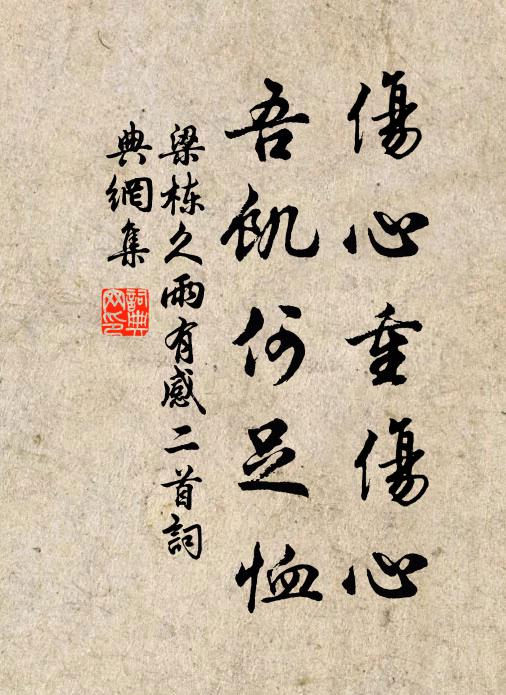 傷心重傷心
吾飢何足恤
梁栋久雨有感二首詞
典網集
詞典
网印